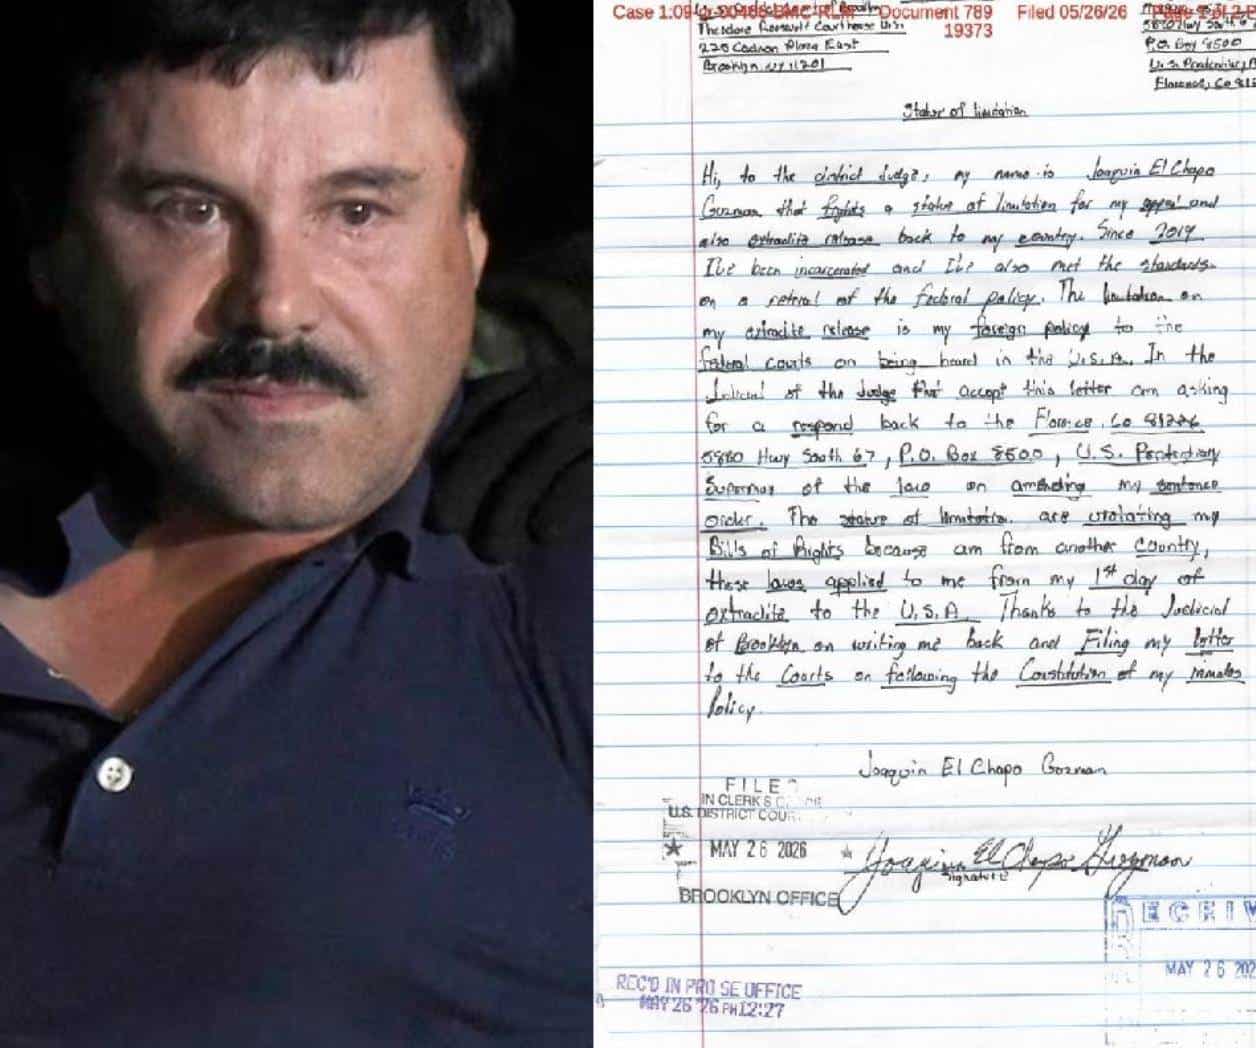 Case 1:09-cr-00466-BMC-RLM Document 789 Filed 05/26/26
19373
Theodore Roosevelt Courthouse U.S.
225 Cadman Plaza East
Brooklyn, NY 11201
5880 Hwy South 6
P.O. Box 8500
U.S. Penitentiary,
Florence, Co 812
Statue of limitation
Hi, to the district Judge, my name is Joaquin El Chapo
Guzman that fights a statue of limitation for my appeal and
also extradite release back to my country. Since 2019
I've been incarcerated and I've also met the standards
on a referal of the federal policy. The limitation on
my extradite release is my foreign policy to the
federal courts on being heard in the U.S.A. In the
Judicial of the Judge that accept this letter am asking
for a respond back to the Florence, Co 81226
5880 Hwy South 67, P.O. Box 8500, U.S. Penitentiary
Supermax of the law on amending my sentence
order. The statue of limitation are violating my
Bill's of Rights because am from another country,
these laws applied to me from my 1st day of
extradite to the U.S.A. Thanks to the Judicial
of Brooklyn on writing me back and Filing my letter
to the Courts on following the Constitution of my inmates
Policy.
Joaquin El Chapo Guzman
FILED
IN CLERK'S
U.S. DISTRICT COURT
★ MAY 26 2026 ★
Joaquin El Chapo Guzman
Signature
BROOKLYN OFFICE
RECEIV
MAY 26 202
REC'D IN PRO SE OFFICE
MAY 26 '26 PM12:27